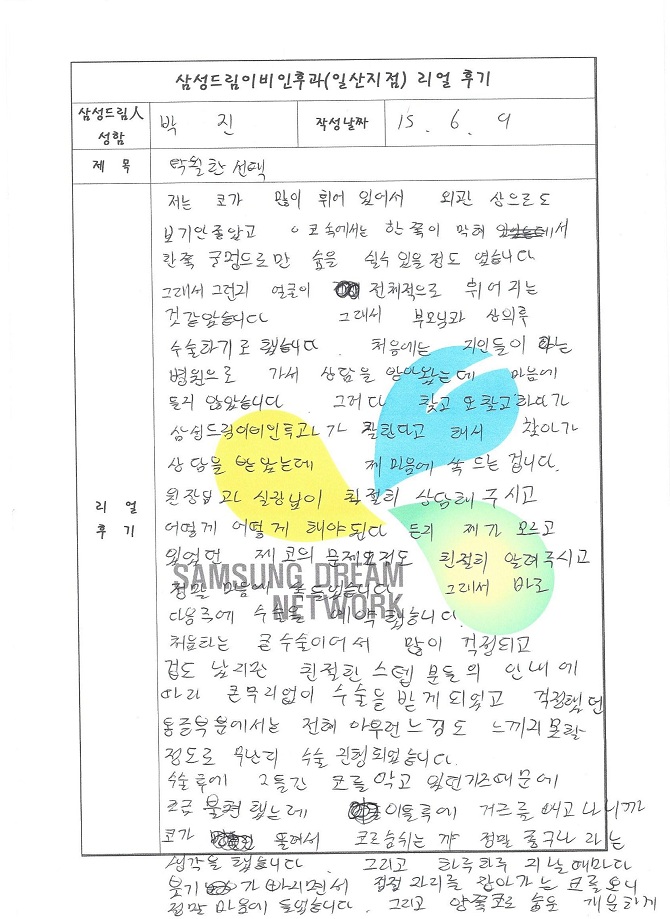 삼성드림이비인후과(일산지점) 리얼 후기
삼성드림人 성함 박 진 작성날짜 15. 6. 9
제 목 탁월한 선택
리 얼 후 기
저는 코가 많이 휘어 있어서 외관 상으로도
보기안좋았고 코 속에서는 한쪽이 막혀 서
한쪽 구멍으로만 숨을 쉴수 있을 정도 였습니다
그래서 그런지 얼굴이 전체적으로 휘어 지는
것같았습니다 그래서 부모님과 상의후
수술하기로 했습니다. 처음에는 지인들이 아는
병원으로 가서 상담을 받아봤는데 마음에
들지 않았습니다 그러다 찾고 또찾고하다가
삼성드림이비인후과가 잘한다고 해서 찾아가
상담을 받았는데 제 마음에 쏙 드는 겁니다.
원장님과 실장님이 친절히 상담해 주시고
어떻게 어떻게 해야된다 든지 제가 모르고
있었던 제 코의 문제요점도 친절히 알려주시고
정말 마음에 쏙 들었습니다 그래서 바로
다음주에 수술을 예약 했습니다.
SAMSUNG DREAM
NETWORK
처음하는 큰수술이어서 많이 걱정되고
겁도 났지만 친절한 스텝 분들의 안내에
따라 큰무리없이 수술을 받게되었고 걱정했던
통증부분에서는 전혀 아무런느낌도 느끼지못할
정도로 무난히 수술 진행되었습니다.
수술후에 2틀간 코를막고 있던거즈때문에
조금 불편 했는데 이틀후에 거즈를 빼고 나니까
코가 뚫려서 코로숨쉬는 게 정말 좋구나 라는
생각을 했습니다. 그리고 하루하루 지날 때마다
붓기 가 빠지면서 점점 자리를 잡아가는 코를보니
정말 마음에 들었습니다. 그리고 양쪽코로 숨을 개운하게